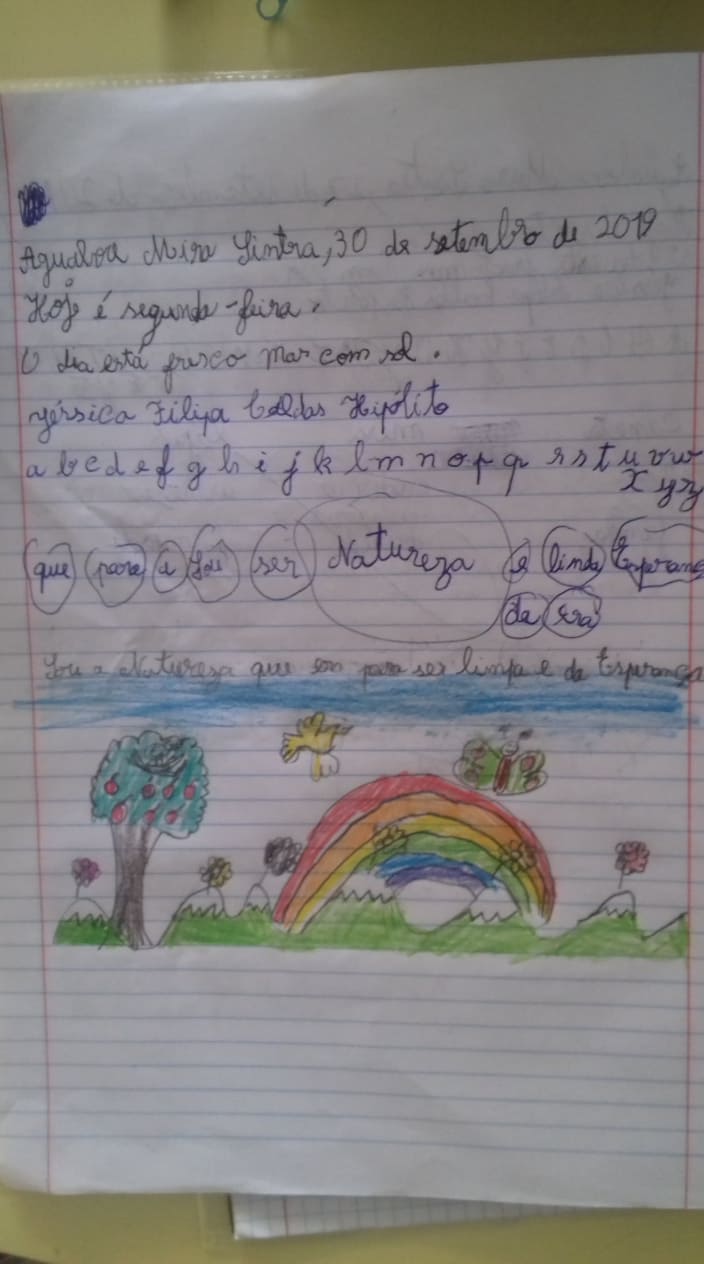 Agualva Mira Sintra, 30 de setembro de 2019
Hoje é segunda-feira.
O dia está fresco mas com sol.
Yérsica Filipa Caldas Hipólito
a b c d e f g h i j k l m n o p q r s t u v w
x y z
que para a Sou ser Natureza e linda Esperanç
da
Sou a Natureza que para ser limpa e da Esperança